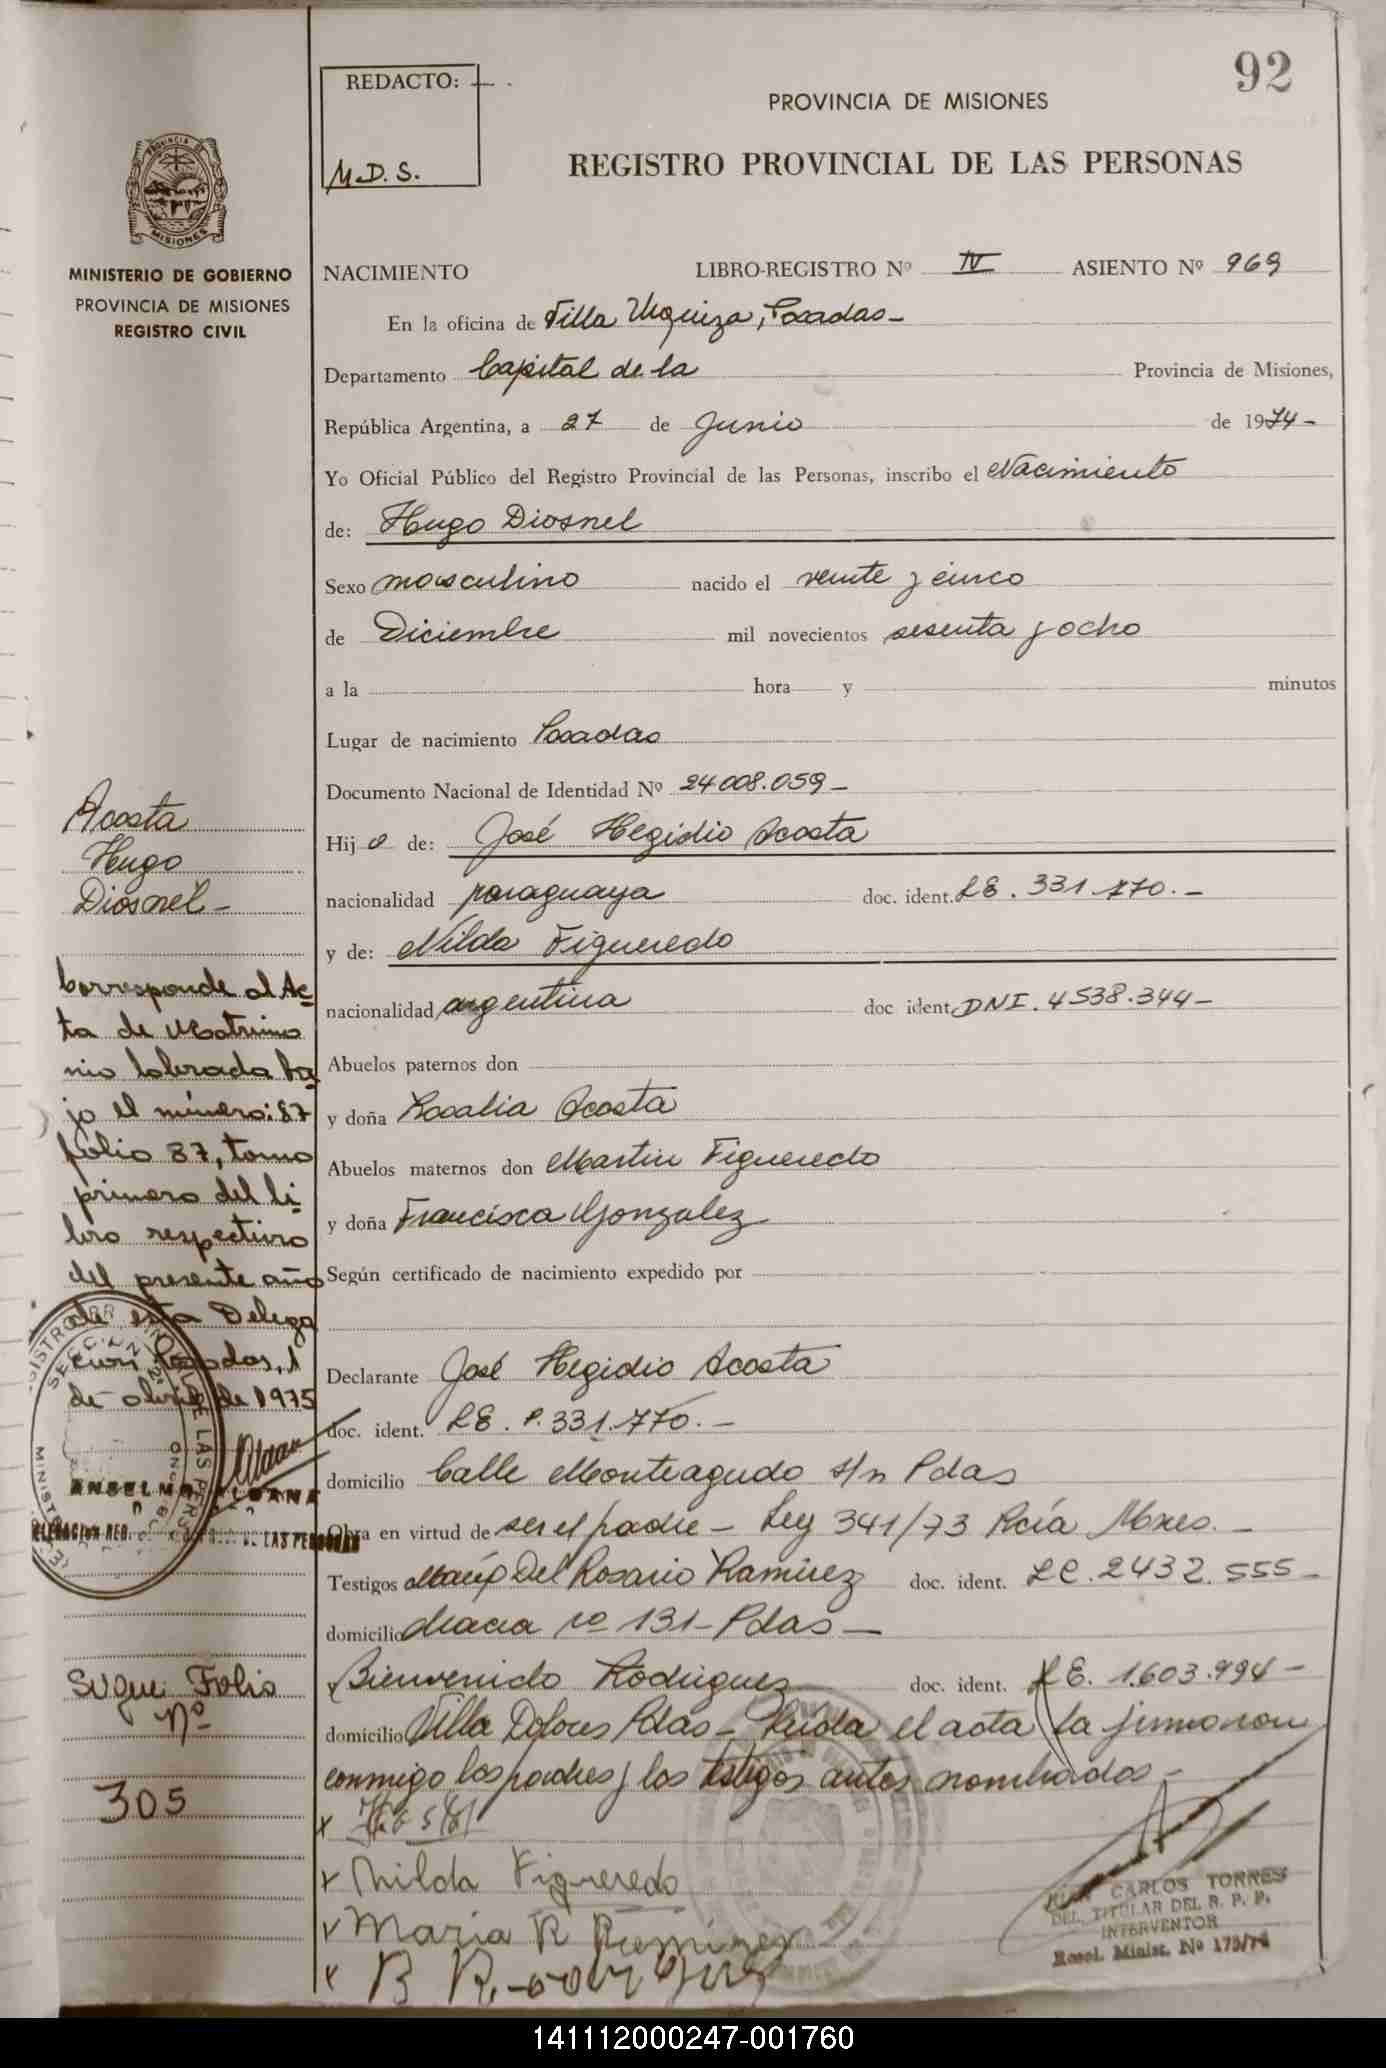 92
REDACTO:
M.D.S.
PROVINCIA DE MISIONES
REGISTRO PROVINCIAL DE LAS PERSONAS
PROVINCIA DE
MISIONES
MINISTERIO DE GOBIERNO
PROVINCIA DE MISIONES
REGISTRO CIVIL
NACIMIENTO LIBRO-REGISTRO Nº IV ASIENTO Nº 969
En la oficina de Villa Urquiza, Posadas-
Departamento Capital de la Provincia de Misiones,
República Argentina, a 27 de Junio de 1974-
Yo Oficial Público del Registro Provincial de las Personas, inscribo el Nacimiento
de: Hugo Diosnel
Sexo masculino nacido el veinte y cinco
de Diciembre mil novecientos sesenta y ocho
a la hora y minutos
Lugar de nacimiento Posadas
Documento Nacional de Identidad Nº 24008.059-
Hijo de: José Hegidio Acosta
nacionalidad paraguaya doc. ident. LE. 331.770.-
y de: Nilda Figueredo
nacionalidad argentina doc ident. DNI. 4538.344-
Abuelos paternos don
y doña Rosalia Acosta
Abuelos maternos don Martin Figueredo
y doña Francisca Gonzalez
Según certificado de nacimiento expedido por
Declarante José Hegidio Acosta
doc. ident. LE. P. 331.770.-
domicilio Calle Monteagudo s/n Pdas
Obra en virtud de ser el padre - Ley 341/73 Pcía Mnes.-
Testigos María Del Rosario Ramirez doc. ident. LC. 2432.555-
domicilio nº 131-Pdas-
Bienvenido Rodriguez doc. ident. LE. 1.603.994-
domicilio Villa Dolores Pdas- Leída el acta la firmaron
conmigo los padres y los testigos antes nombrados-
x
x Nilda Figueredo
x Maria R Ramirez
x B Rodriguez
CARLOS TORRES
DEL. TITULAR DEL R. P. P.
INTERVENTOR
Resol. Minist. No 175/74
Acosta
Hugo
Diosnel-
Corresponde al Ac-
ta de Matrimo
nio labrada ba-
jo el número: 87
folio 87, tomo
primero del li-
bro respectivo
del presente año
de esta Delega
cion Posadas, 1
de abril de 1975
ANSELMA ALDANA
DE LAS PERSONAS
Sigue Folio
Nº
305
141112000247-001760